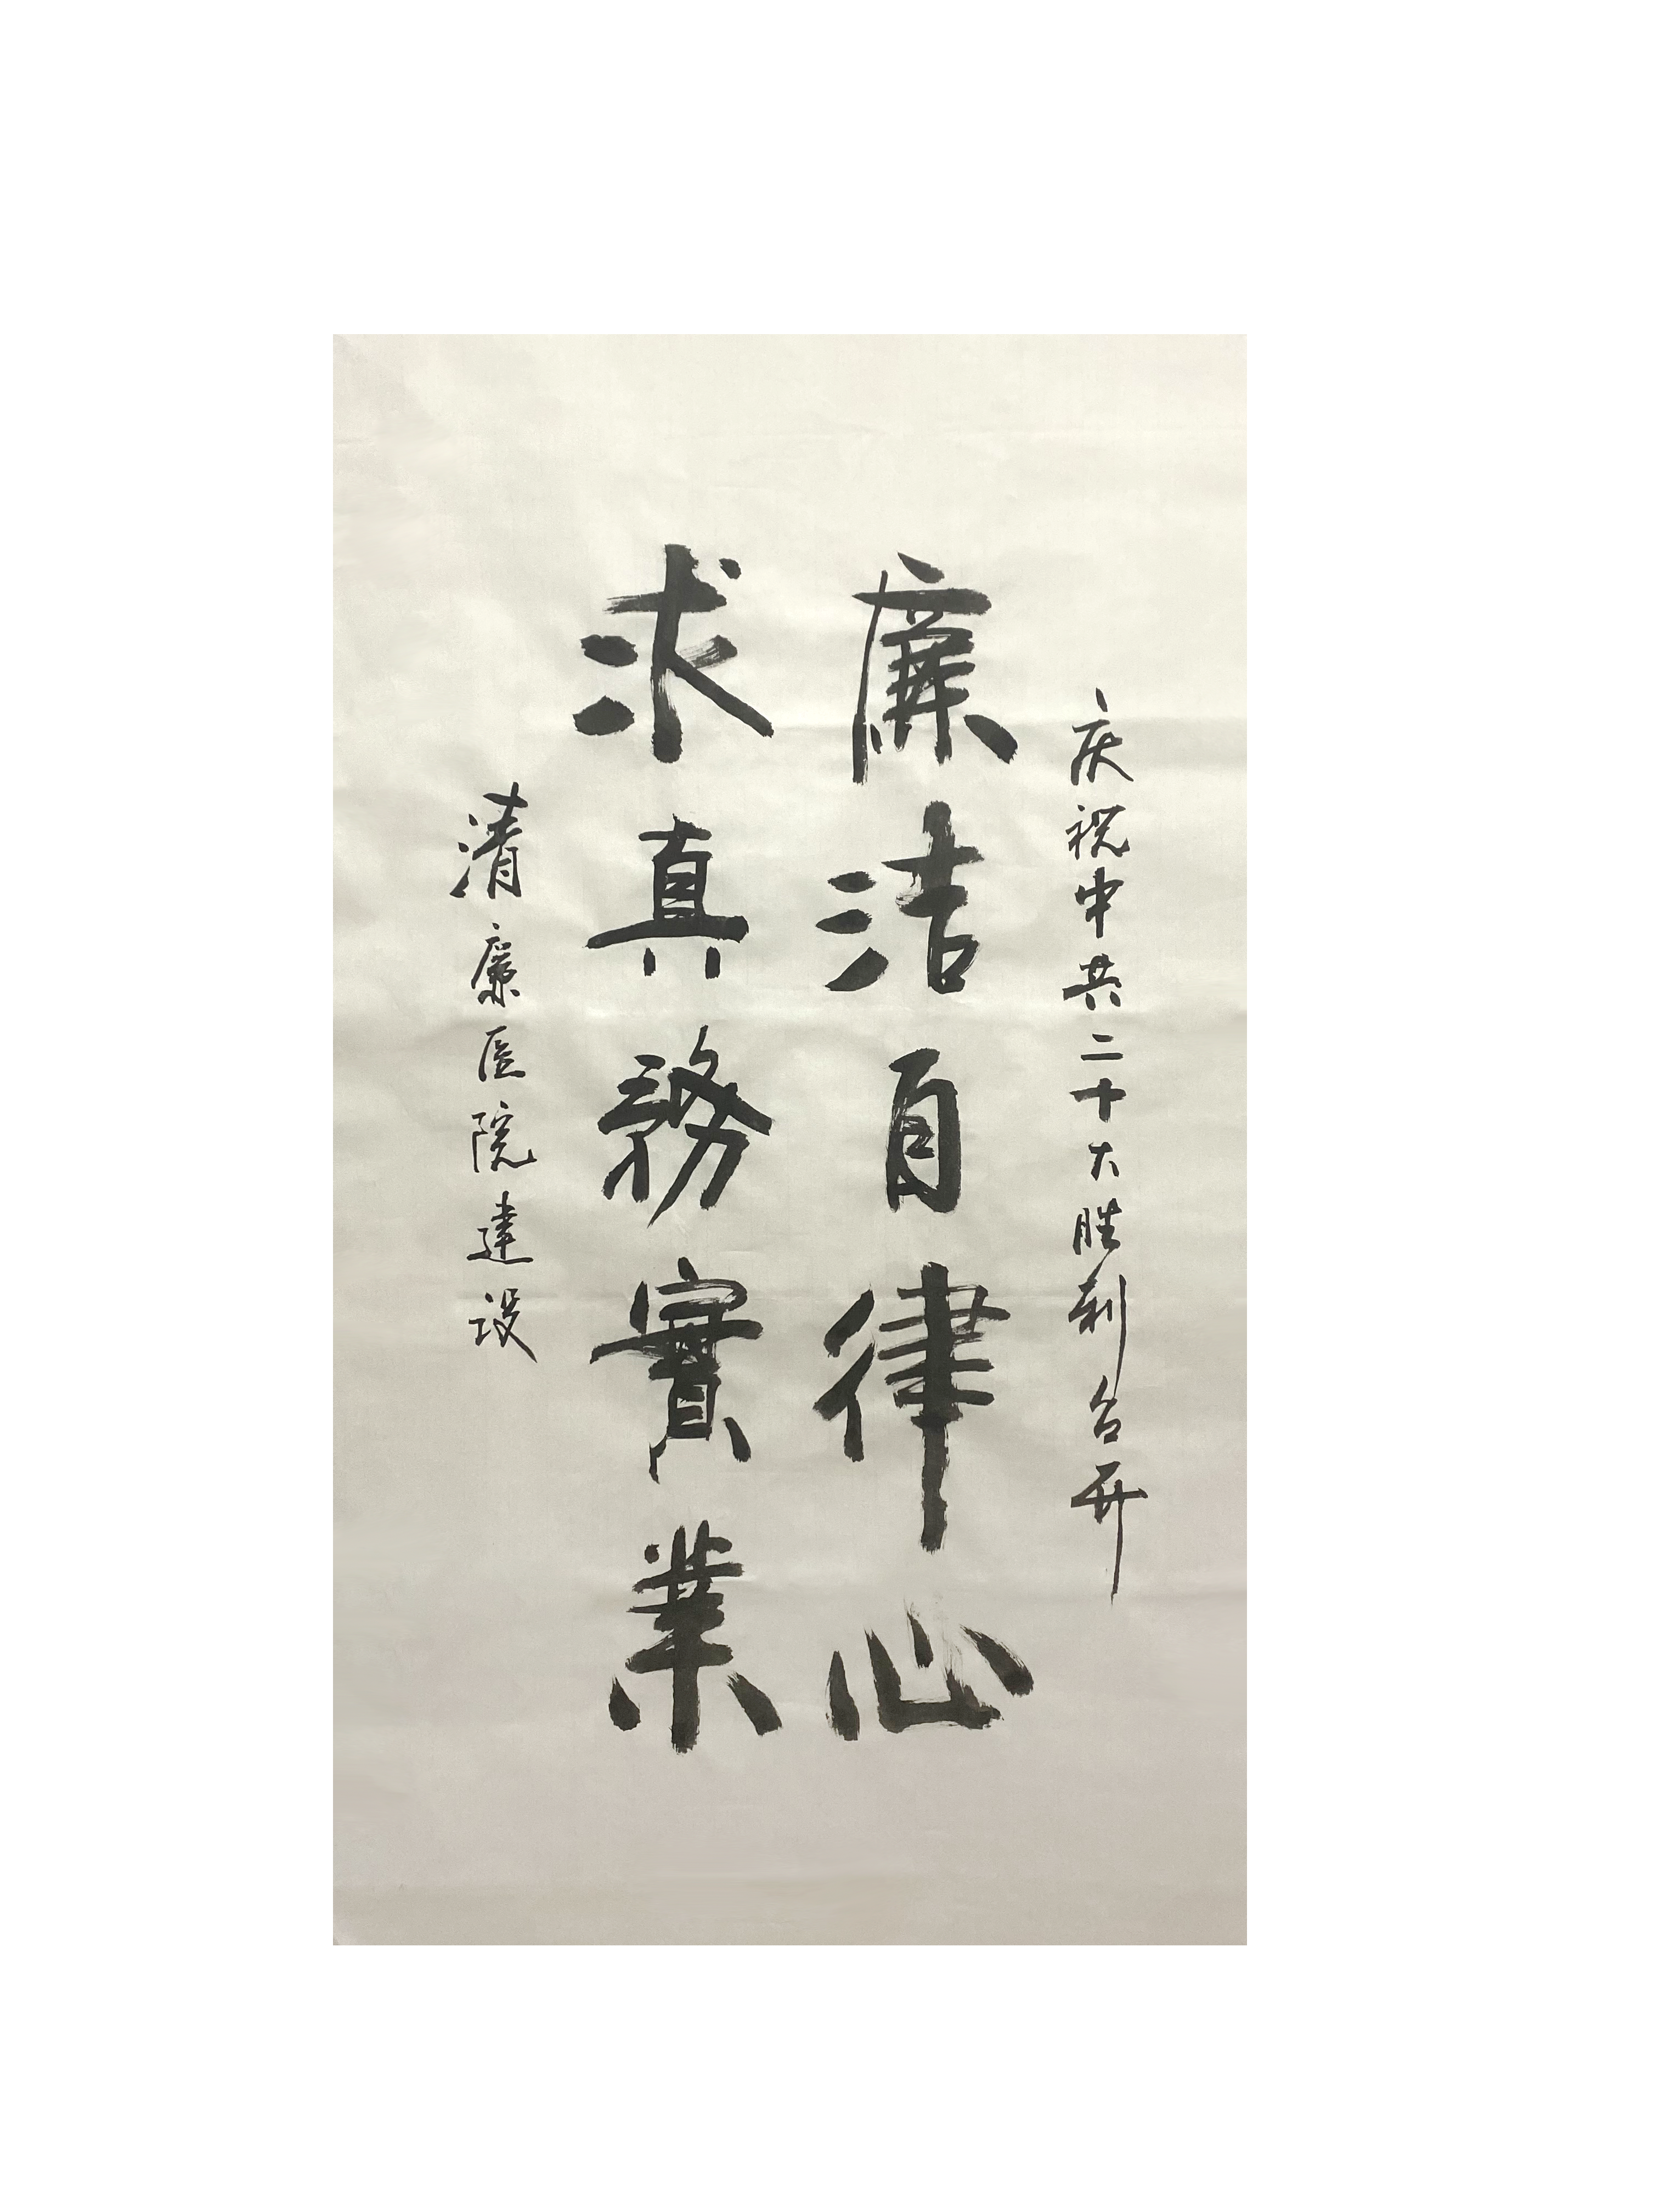 庆祝中共二十大胜利召开
廉洁自律心
求真務實業
清廉医院建设